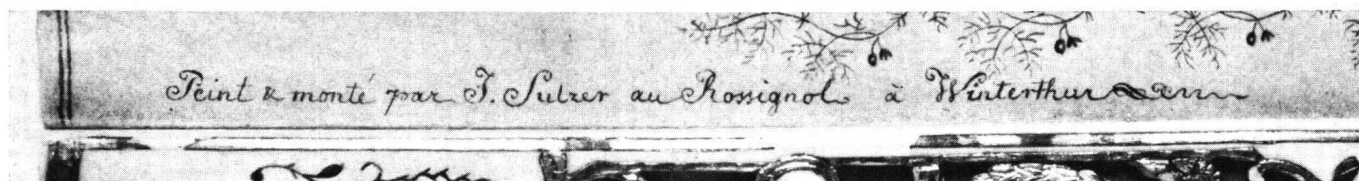 Peint & monté par J. Sulzer au Rossignol à Winterthur